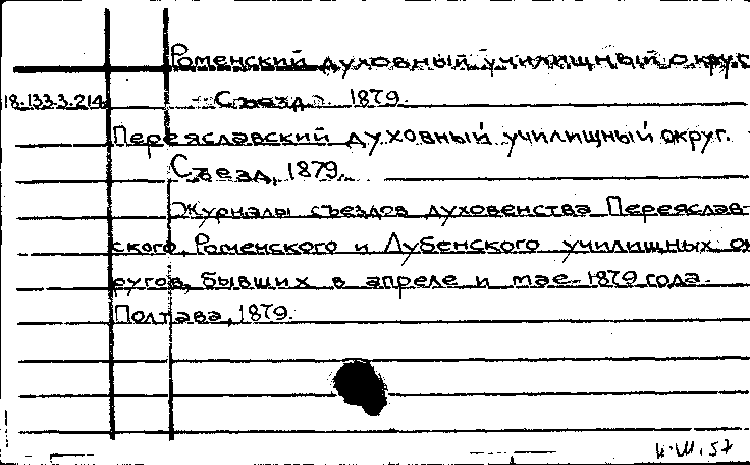 Роменский духовный училищный округ
18.133.3.214 Съезд. 1879.
Переяславский духовный училищный округ.
Съезд, 1879.
Журналы съездов духовенства Переяслав-
ского, Роменского и Лубенского училищных ок
ругов, бывших в апреле и мае 1879 года.
Полтава, 1879.